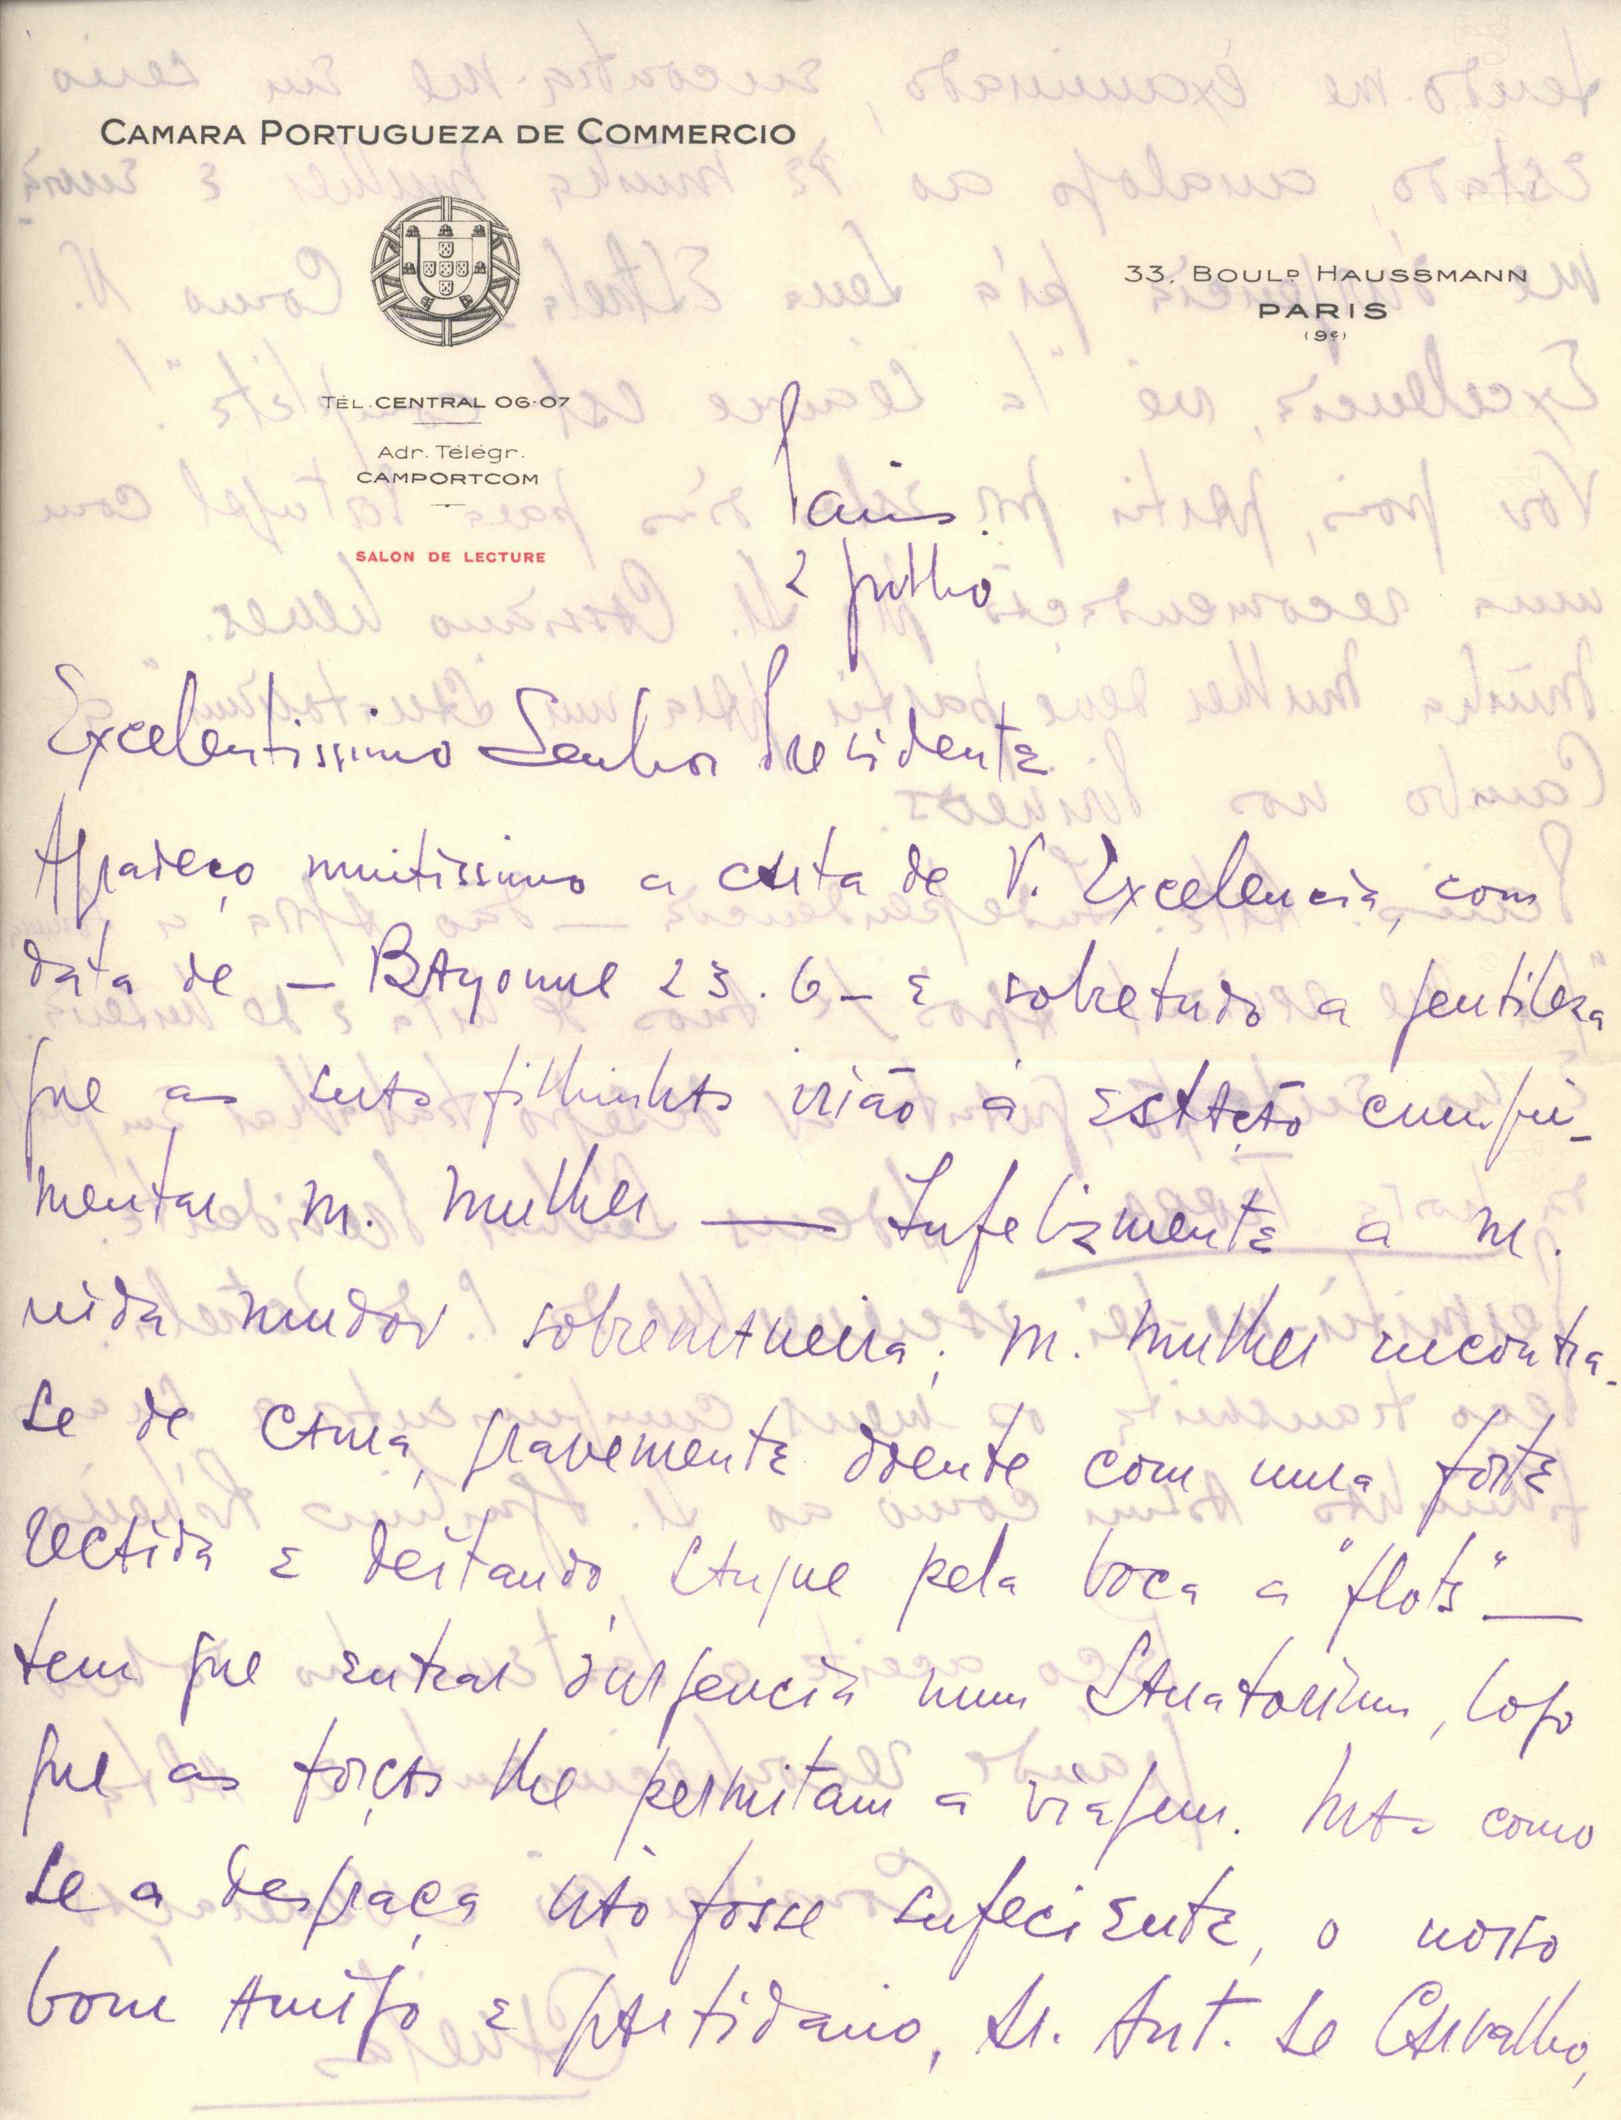 CAMARA PORTUGUEZA DE COMMERCIO
33, BOULD HAUSSMANN
PARIS
(9e)
TÉL. CENTRAL 06-07
Adr. Télégr.
CAMPORTCOM
SALON DE LECTURE
Paris.
2 Julho
Excelentissimo Senhor Presidente
Agradeço muitissimo a carta de V. Excelencia, com
data de – Bayonne 23.6 – e sobretudo a gentileza
que as suas filhinhas irião á estação cumpri-
mentar m. mulher — Infelizmente a m.
vida mudou sobremaneira; m. mulher encontra-
se de cama, gravemente doente com uma forte
recaída e deitando sangue pela boca a "flots" —
tem que entrar d'urgencia num Sanatorium, logo
que as forças lhe permitam a viagem. Mas como
se a desgraça não fosse sufeciente, o nosso
bom amigo e partidario, Dr. Ant. de Carvalho,